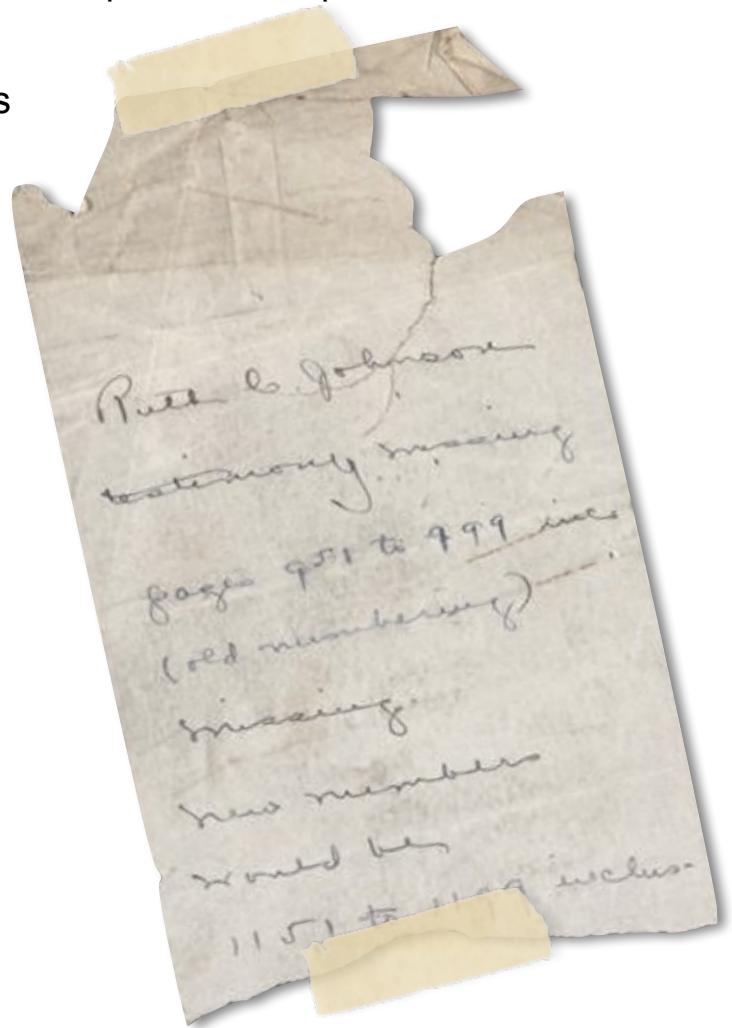 s
Ruth C Johnson
testimony missing
pages 951 to 999 inc.
(old numbering)
missing
new numbers
would be,
1151 to 1199 inclus-